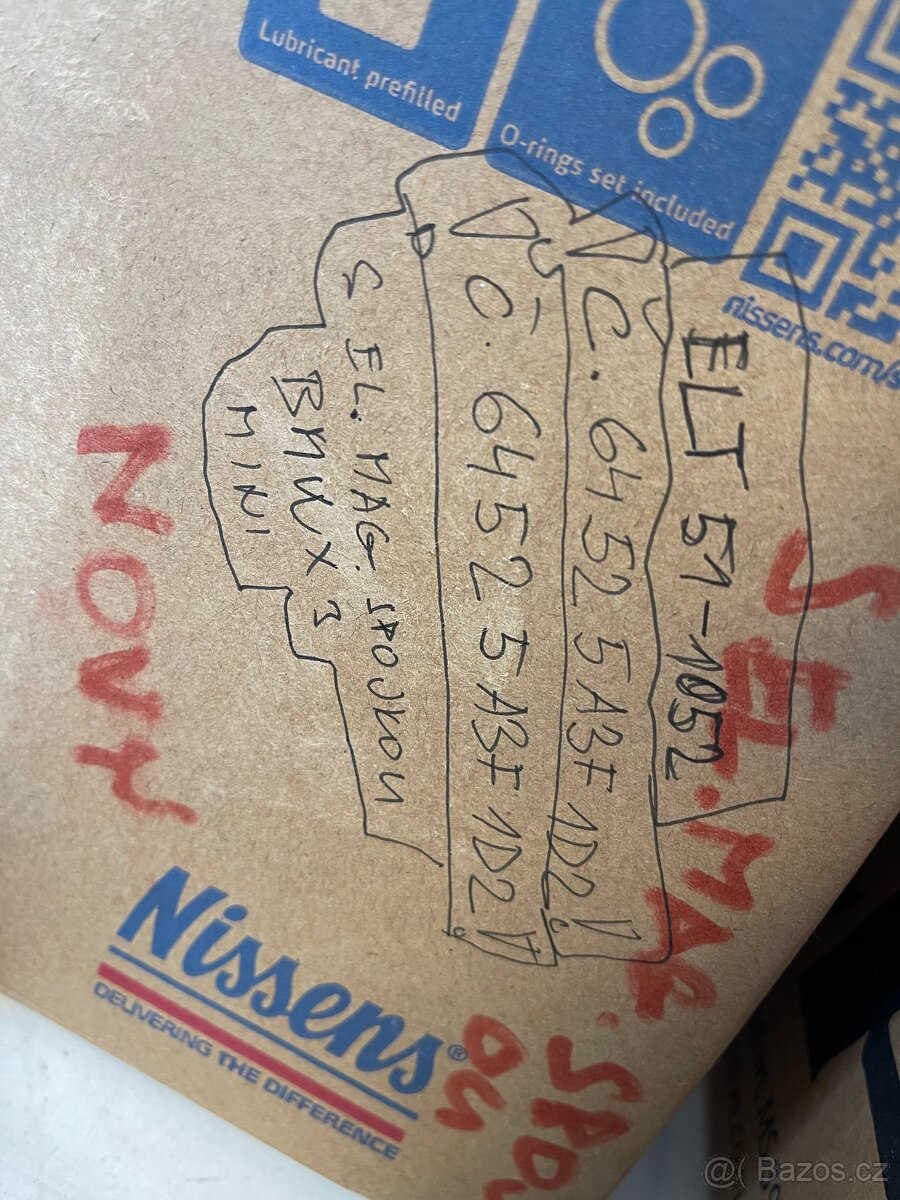 Lubricant prefilled
O-rings set included
nissens.com/s
ELT 51-1052
Č. 6452 5A3F 1D2
Č. 6452 5A3F 1D2
S EL. MAG. SPOJKOU
BMW X 3
MINI
S EL. MAG. SPO
OU
NOVÝ
Nissens®
DELIVERING THE DIFFERENCE
@( Bazos.cz